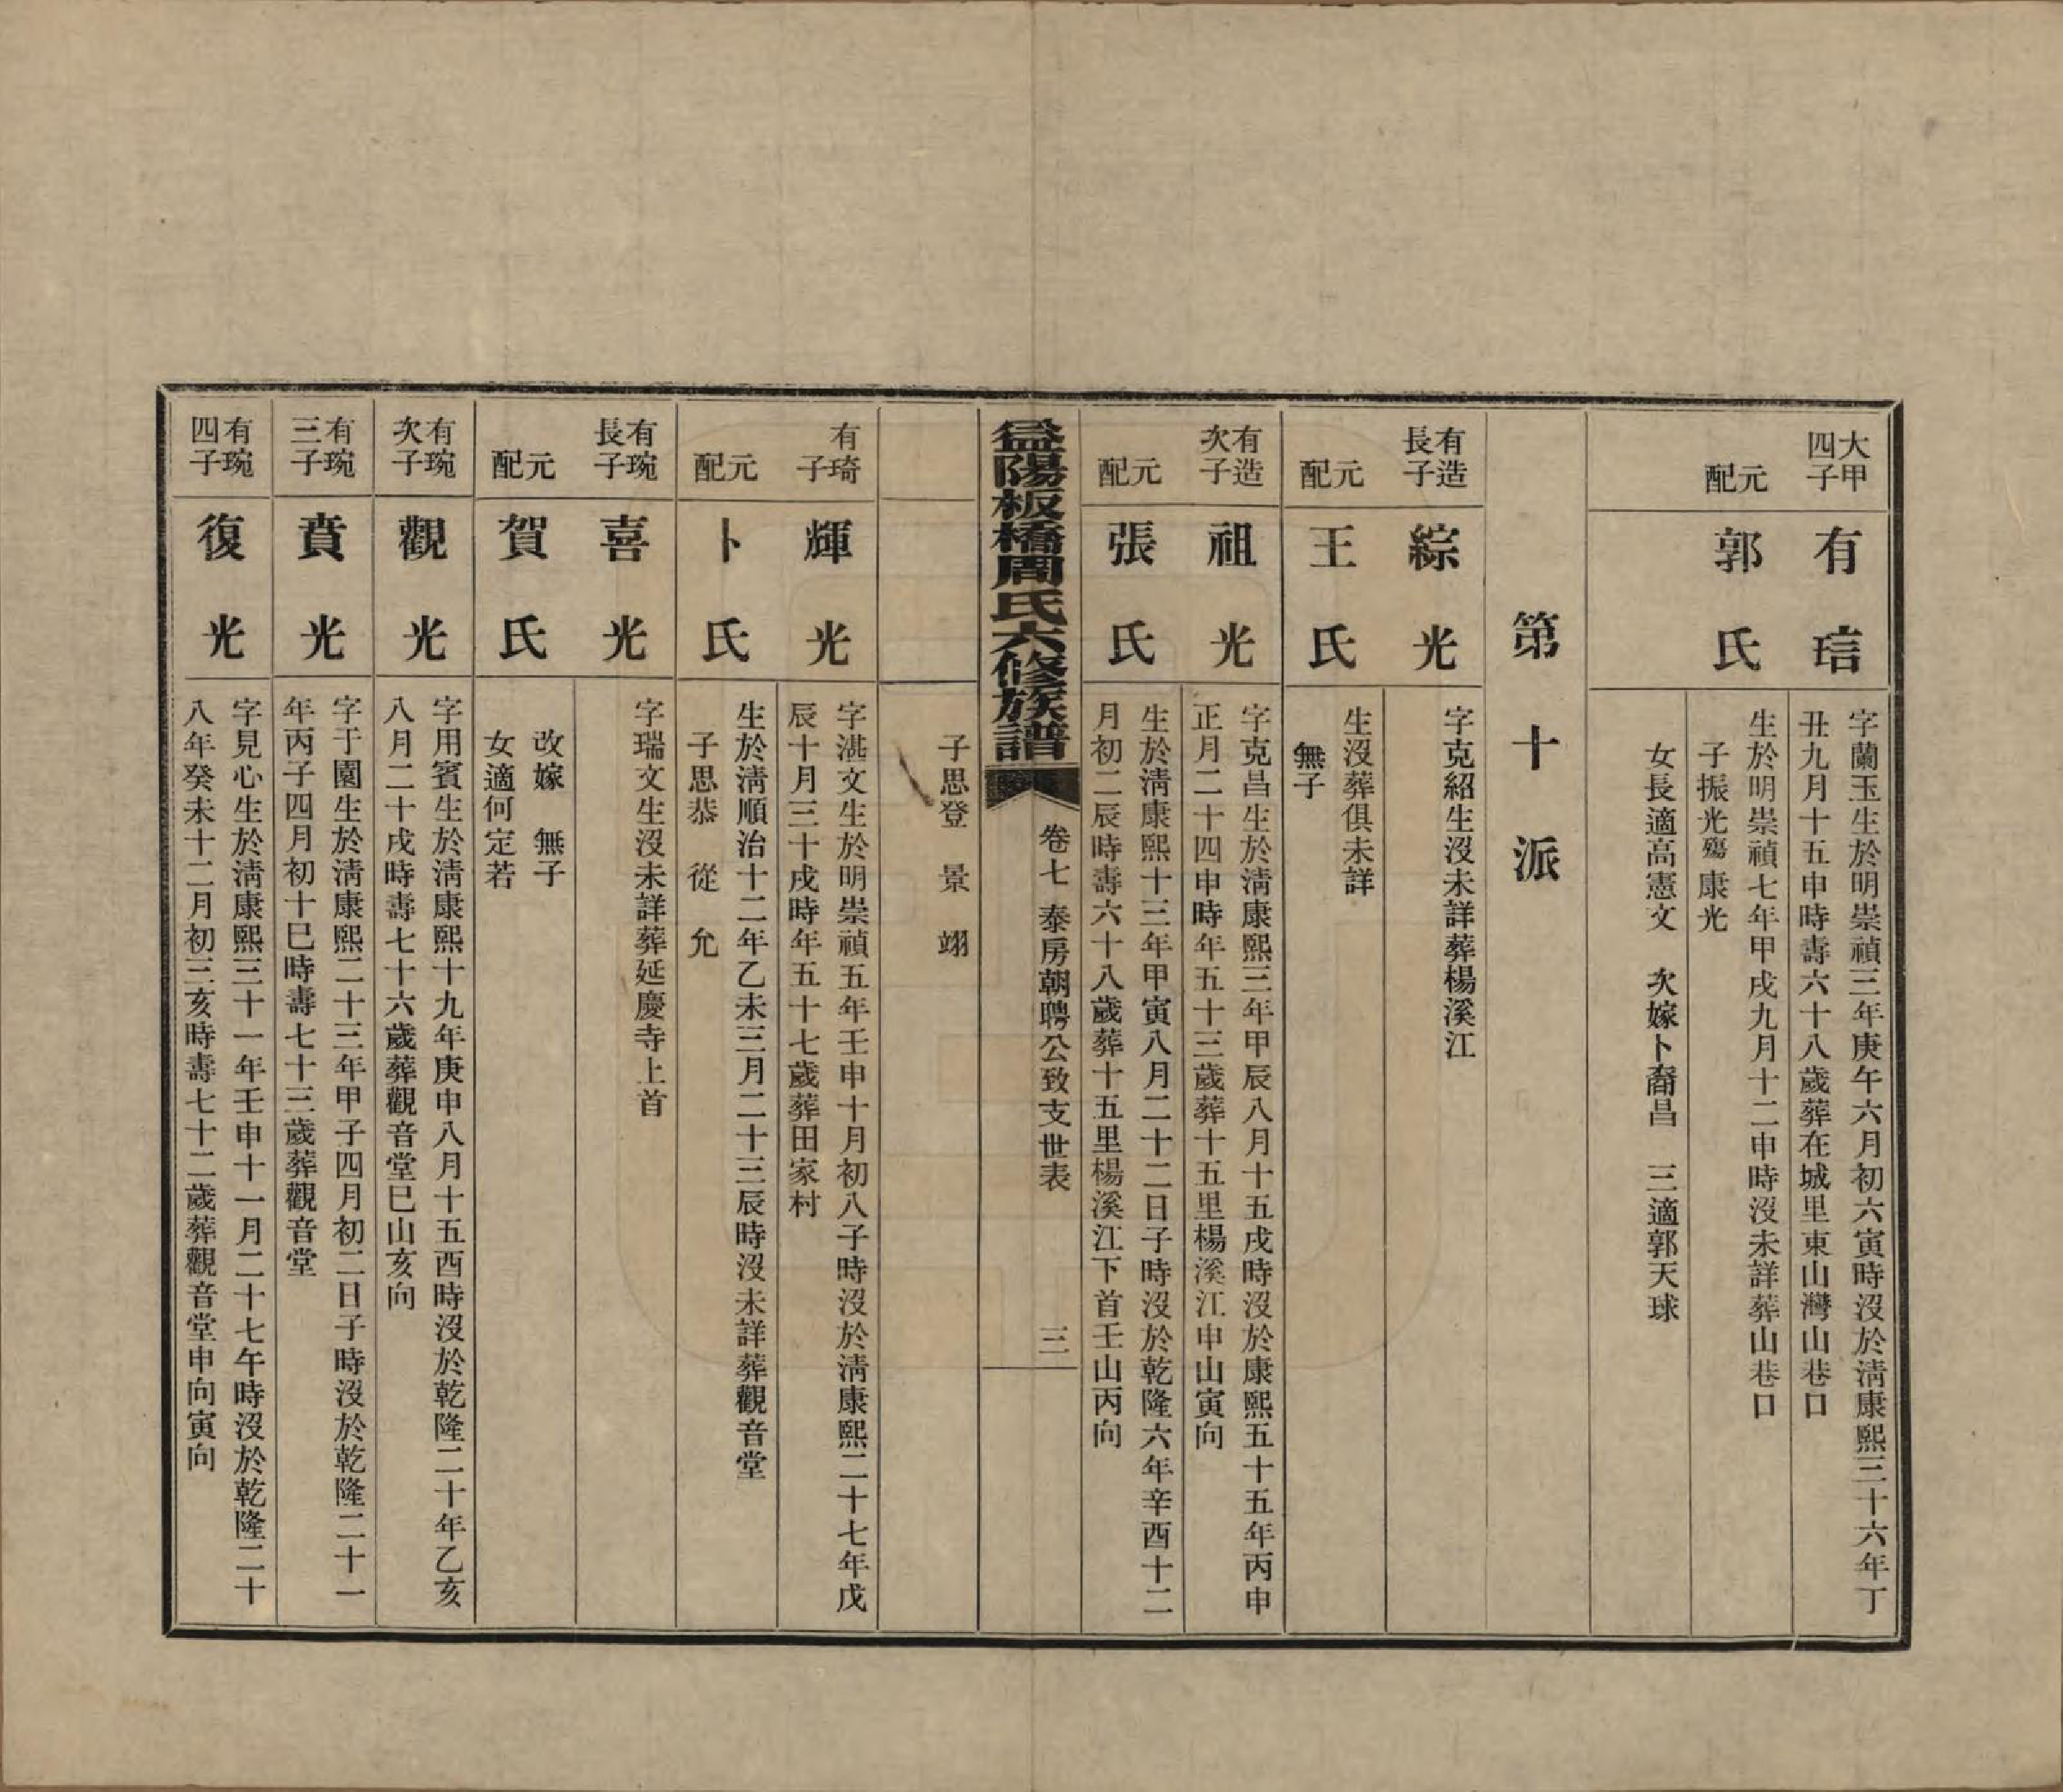 大甲
四子
有琂
字蘭玉生於明崇禎三年庚午六月初六寅時沒於淸康熙三十六年丁
丑九月十五申時壽六十八歲葬在城里東山灣山巷口
元配
郭氏
生於明崇禎七年甲戌九月十二申時沒未詳葬山巷口
子振光殤 康光
女長適高憲文 次嫁卜裔昌 三適郭天球
第十派
有造
長子
綜光
字克紹生沒未詳葬楊溪江
元配
王氏
生沒葬俱未詳
無子
有造
次子
祖光
字克昌生於淸康熙三年甲辰八月十五戌時沒於康熙五十五年丙申
正月二十四申時年五十三歲葬十五里楊溪江申山寅向
元配
張氏
生於淸康熙十三年甲寅八月二十二日子時沒於乾隆六年辛酉十二
月初二辰時壽六十八歲葬十五里楊溪江下首壬山丙向
益陽板橋周氏六修族譜
卷七 泰房朝聘公致支世表
三
子思登 景 翊
有琦
子
輝光
字湛文生於明崇禎五年壬申十月初八子時沒於淸康熙二十七年戊
辰十月三十戌時年五十七歲葬田家村
元配
卜氏
生於淸順治十二年乙未三月二十三辰時沒未詳葬觀音堂
子思恭 從 允
有琬
長子
喜光
字瑞文生沒未詳葬延慶寺上首
元配
賀氏
改嫁 無子
女適何定若
有琬
次子
觀光
字用賓生於淸康熙十九年庚申八月十五酉時沒於乾隆二十年乙亥
八月二十戌時壽七十六歲葬觀音堂巳山亥向
有琬
三子
賁光
字于園生於淸康熙二十三年甲子四月初二日子時沒於乾隆二十一
年丙子四月初十巳時壽七十三歲葬觀音堂
有琬
四子
復光
字見心生於淸康熙三十一年壬申十一月二十七午時沒於乾隆二十
八年癸未十二月初三亥時壽七十二歲葬觀音堂申向寅向